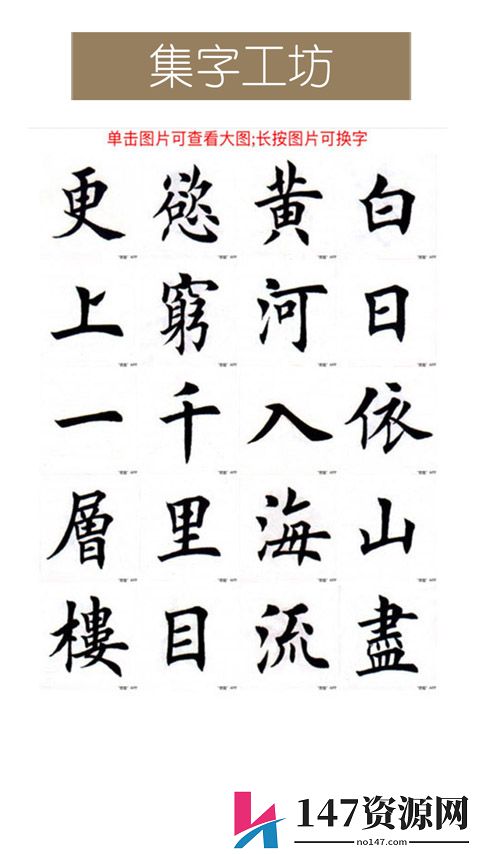 集字工坊
单击图片可查看大图;长按图片可换字
白日依山盡
黄河入海流
慾窮千里目
更上一層樓
147资源网
no147.com